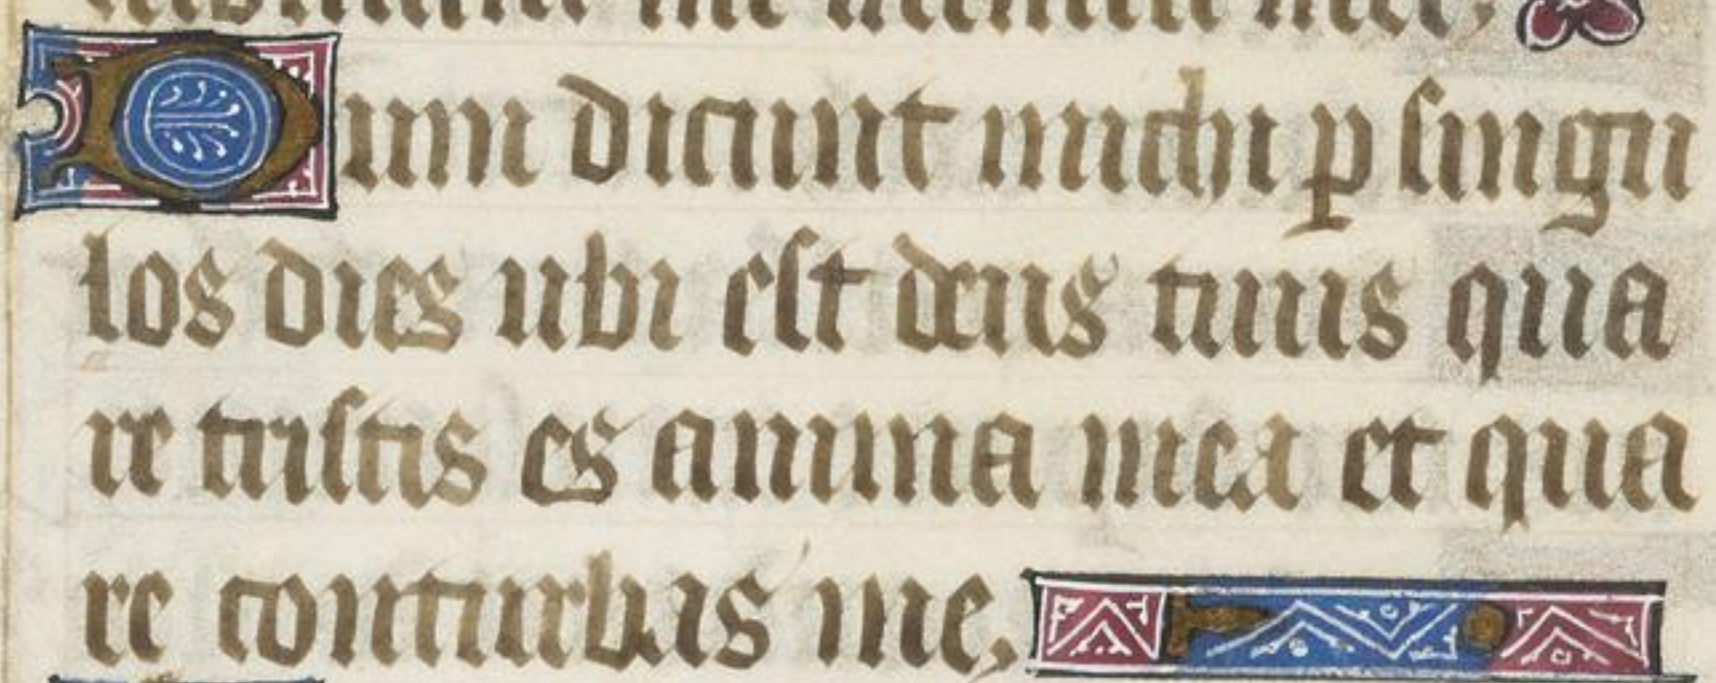 me inimici mei.
Dum dicunt michi p singu
los dies ubi est deus tuus qua
re tristis es anima mea et qua
re conturbas me.